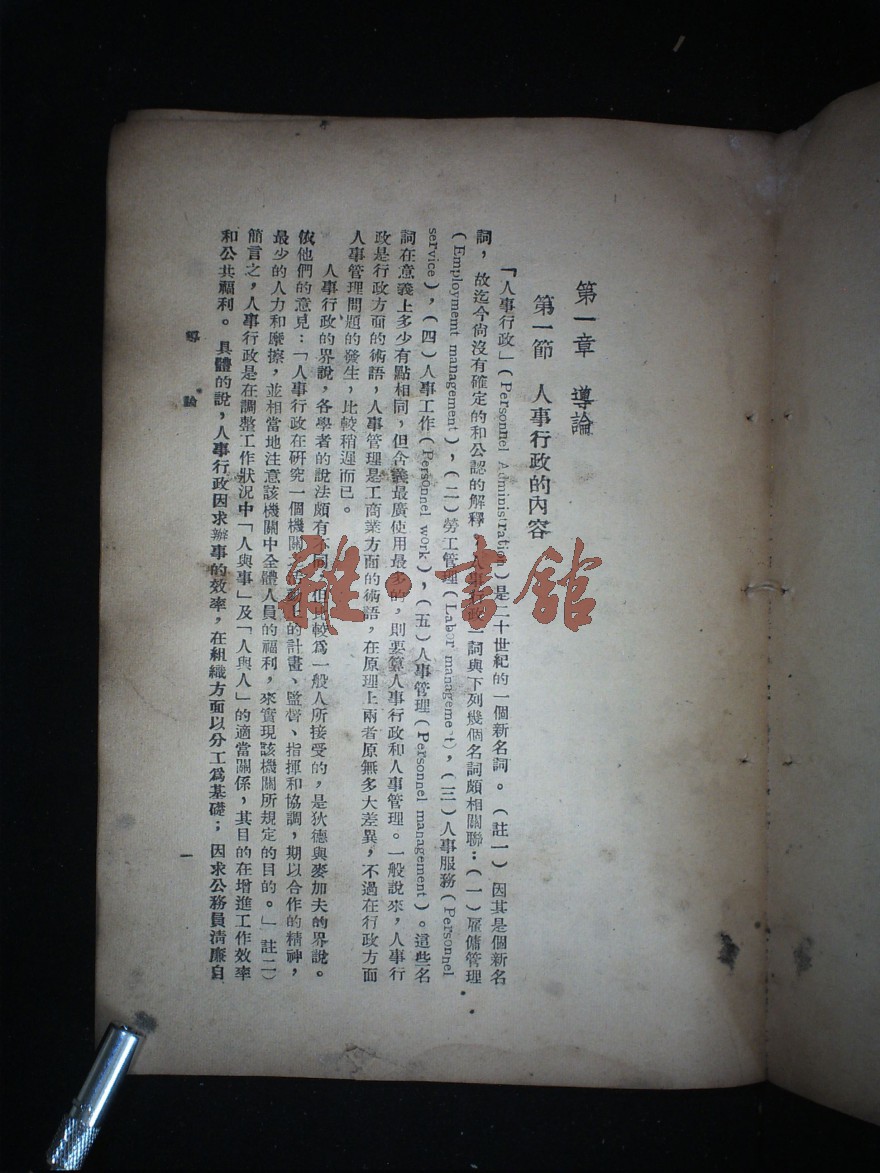 第一章　導論
第一節　人事行政的內容
「人事行政」(Personnel Administration)是二十世紀的一個新名詞。(註一)因其是個新名
詞，故迄今尙沒有確定的和公認的解釋，人事行政一詞與下列幾個名詞頗相關聯：(一)雇傭管理
(Employment management)，(二)勞工管理(Labor management)，(三)人事服務(Personnel
service)，(四)人事工作(Personnel work)，(五)人事管理(Personnel management)。這些名
詞在意義上多少有點相同，但含義最廣使用最多的，則要算人事行政和人事管理。一般說來，人事行
政是行政方面的術語，人事管理是工商業方面的術語，在原理上兩者原無多大差異，不過在行政方面
人事管理問題的發生，比較稍遲而已。
人事行政的界說，各學者的說法頗有不同，但比較爲一般人所接受的，是狄德與麥加夫的界說。
依他們的意見：「人事行政在研究一個機關 的計畫、監督、指揮和協調，期以合作的精神，
最少的人力和磨擦，並相當地注意該機關中全體人員的福利，來實現該機關所規定的目的。」註二)
簡言之，人事行政是在調整工作狀況中「人與事」及「人與人」的適當關係，其目的在增進工作效率
和公共福利。具體的說，人事行政因求辦事的效率，在組織方面以分工爲基礎；因求公務員淸廉自
導　論
一
雜·書館